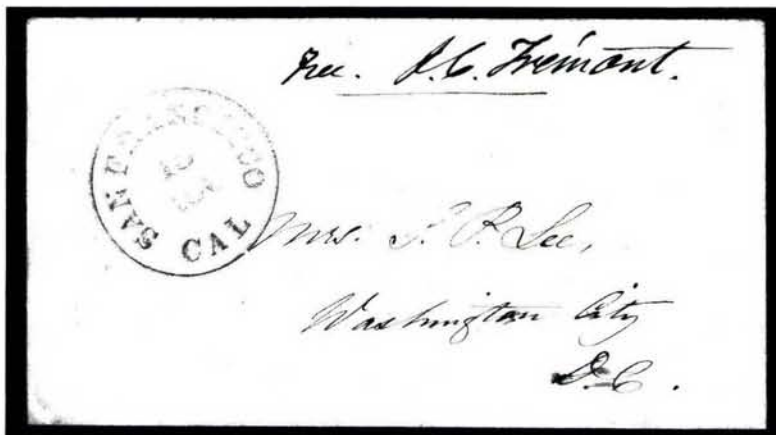 Free. J.C. Frémont.
SAN FRANCISCO
CAL
Mrs. S. P. Lee,
Washington City
D.C.